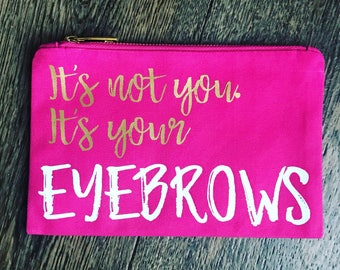 It's not you.
It's your
EYEBROWS